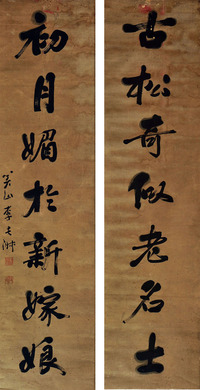 古松奇似老名士
初月媚於新嫁娘